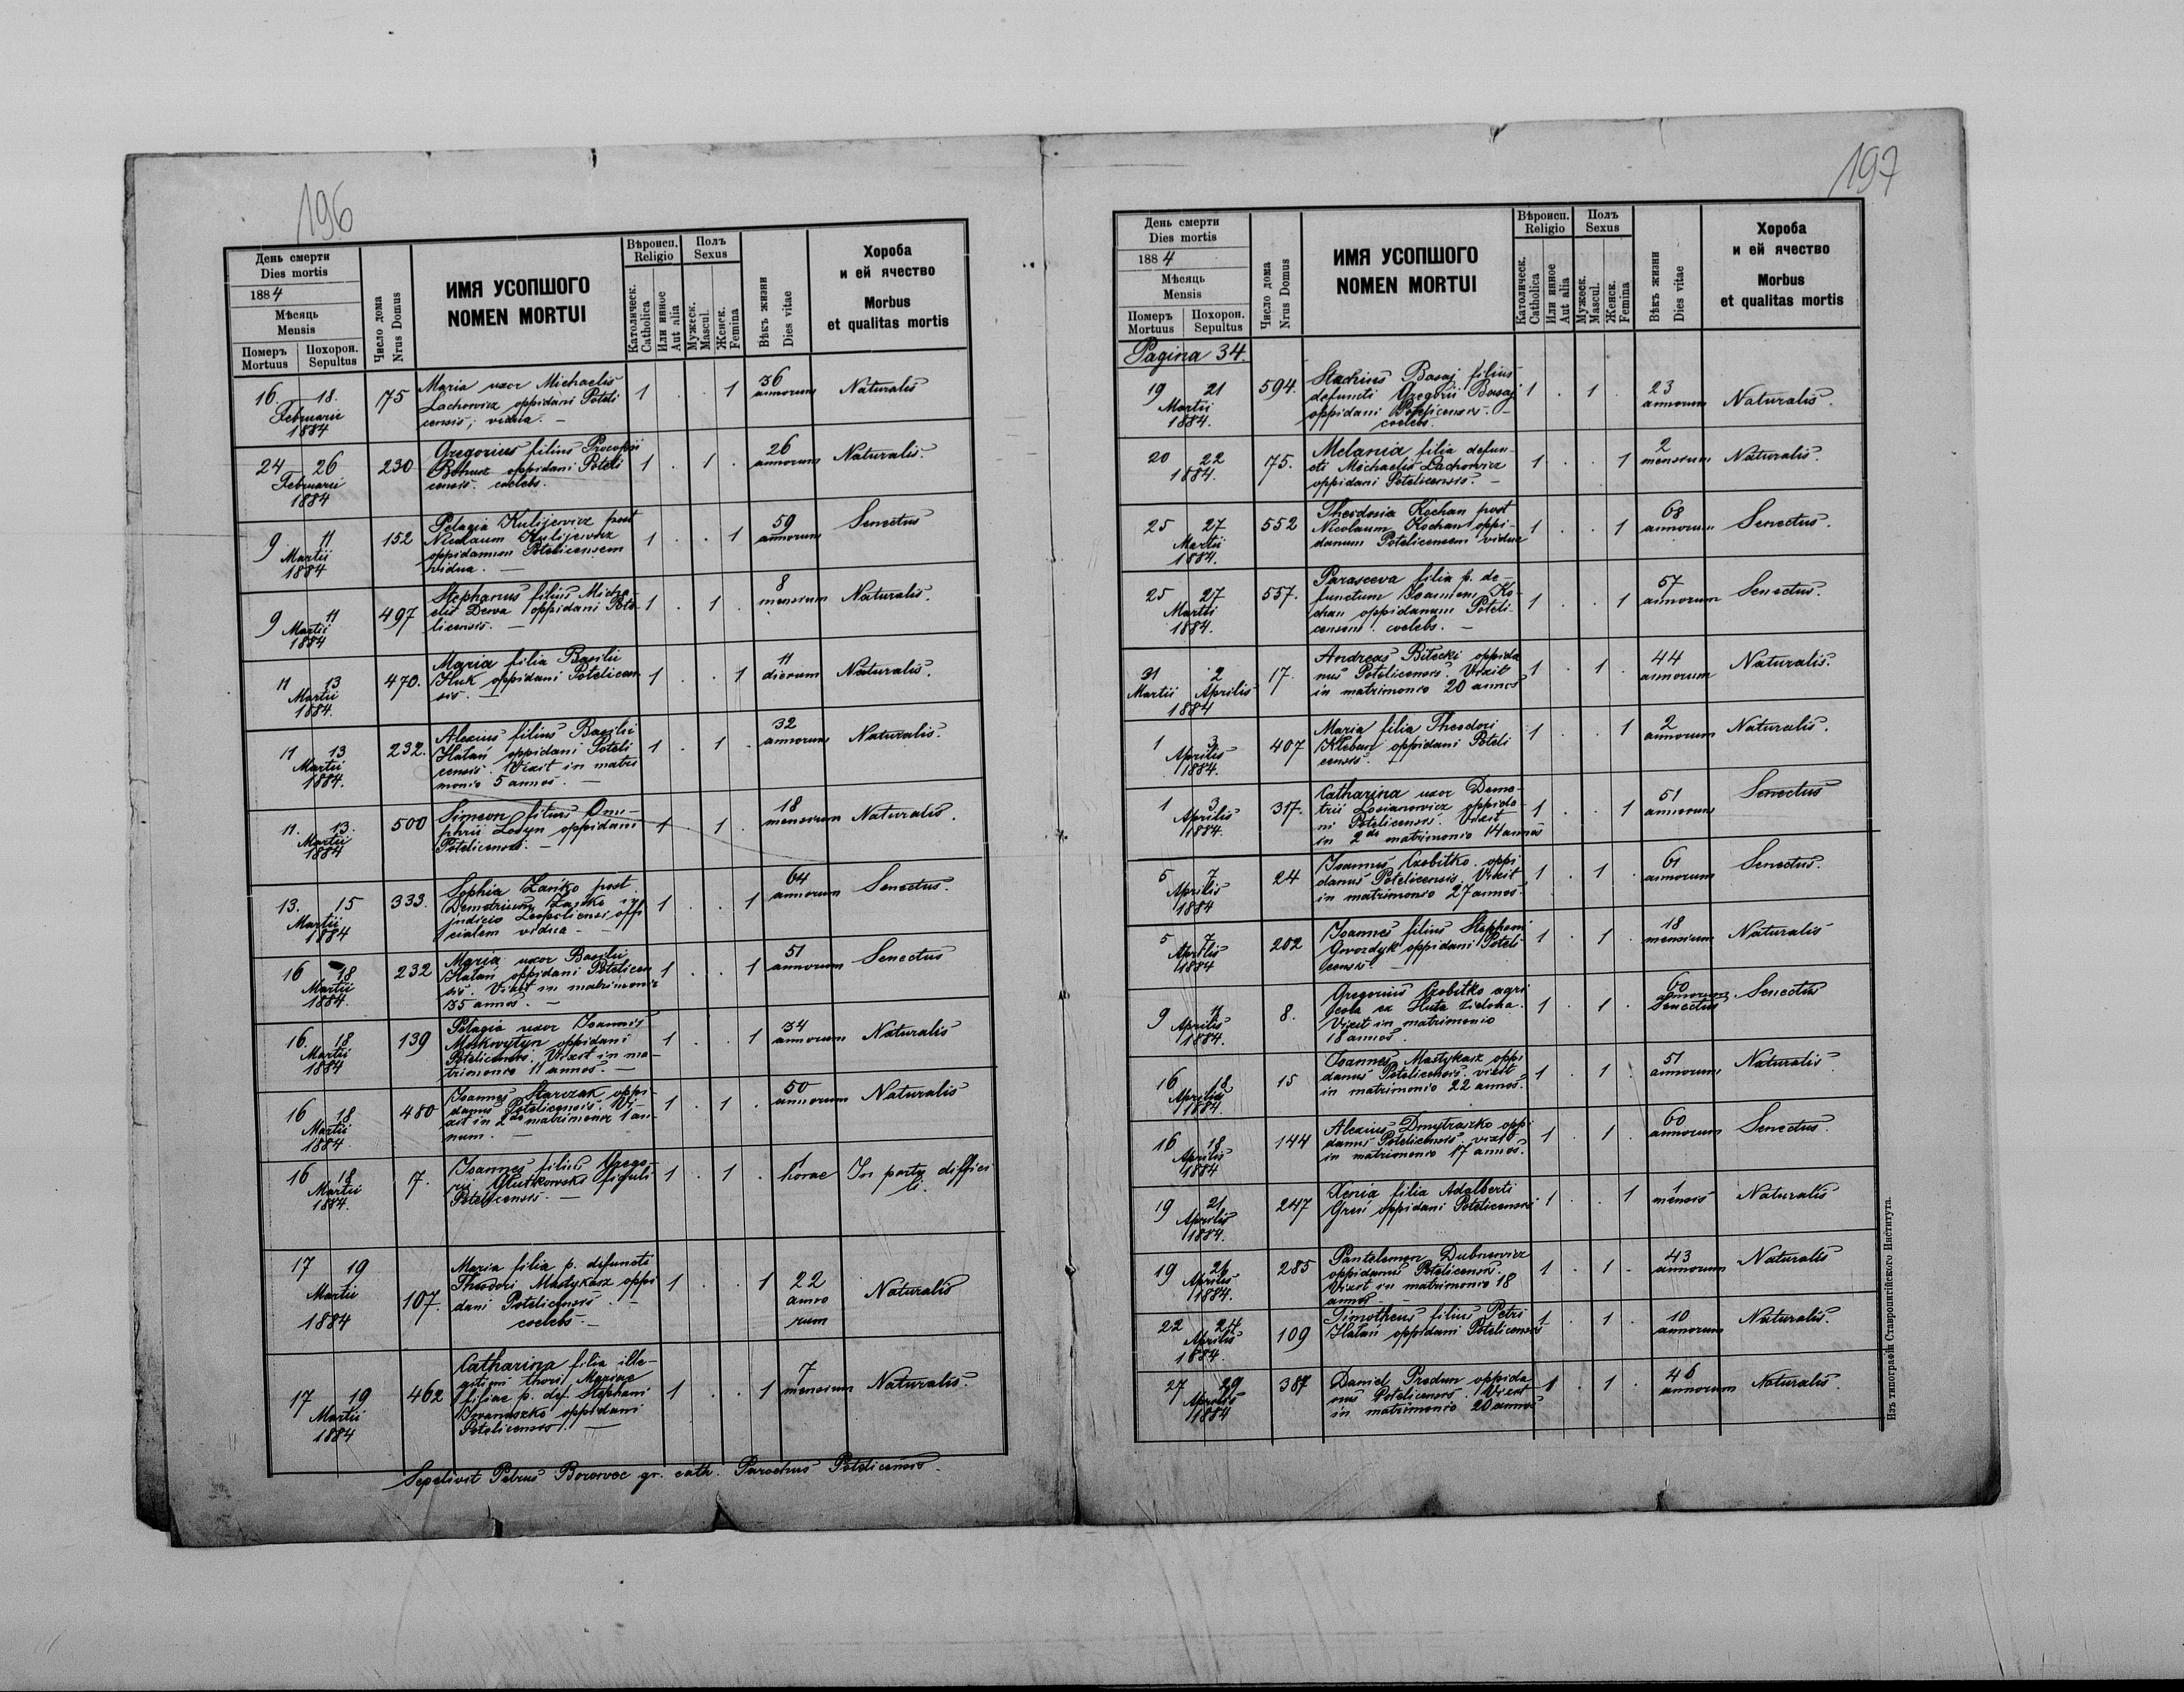 196
День смерти
Dies mortis
1884
Мѣсяць
Mensis
Померъ Mortuus
Похорон. Sepultus
Число дома
Nrus Domus
ИМЯ УСОПШОГО
NOMEN MORTUI
Вѣроисп.
Religio
Католическ.
Catholica
Или инное
Aut alia
Полъ
Sexus
Мужеск.
Mascul.
Женск.
Femina
Вѣкъ жизни
Dies vitae
Хороба
и ей ячество
Morbus
et qualitas mortis
16. 18. Februarii 1884 75 Maria uxor Michaelis 1 . . 1 36 annorum Naturalis
Lachowicz oppidani Poteli
censis, vidua. –
24 26 Februarii 1884 230 Gregorius filius Procopii 1 . 1 . 26 annorum Naturalis
oppidani Poteli
censis. coelebs.
9 11 Martii 1884 152 Pelagia Kulijewicz post 1 . . 1 59 annorum Senectus
Nicolaum Kulijewicz
oppidanum Potelicensem
vidua. –
9 11 Martii 1884 497 Stephanus filius Micha 1 . 1 . 8 mensium Naturalis.
elis Derva oppidani Pote-
licensis. –
11 13 Martii 1884. 470. Maria filia Basilii 1 . . 1 11 dierum Naturalis.
Huk oppidani Potelicen
sis. –
11 13 Martii 1884. 232. Alexius filius Basilii 1 . 1 . 32 annorum Naturalis.
Hałań oppidani Poteli
censis. Vixit in matri
monio 5 annos. –
11. 13. Martii 1884 500 Simeon filius Onu- 1 . 1 . 18 mensium Naturalis.
phrii Lesyn oppidani
Potelicensis. –
13. 15 Martii 1884 333. Sophia Zańko post 1 . . 1 64 annorum Senectus.
Demetrium Zańko in
judicio Leopoliensi offi
cialem vidua –
16 18 Martii 1884. 232 Maria uxor Basilii 1 . . 1 51 annorum Senectus
Hałań oppidani Potelicen
sis. Vixit in matrimonio
35 annos. –
16. 18 Martii 1884 139 Pelagia uxor Joannis 1 . . 1 34 annorum Naturalis
Moskwytyn oppidani
Potelicensis. Vixit in ma-
trimonio 11 annos. –
16 18 Martii 1884. 480 Joannes Starczak oppi- 1 . 1 . 50 annorum Naturalis
danus Potelicensis. Vi-
xit in 2do matrimonio 1 an-
num. –
16 18 Martii 1884. 7. Joannes filius Grego- 1 . 1 . 1 horae In partu diffici
rii Glutkowski figuli li.
Potelicensis. –
17 19 Martii 1884 107. Maria filia p. defuncti 1 . . 1 22 anno rum Naturalis
Theodori Mastykasz oppi
dani Potelicensis. –
coelebs. –
17 19 Martii 1884 462 Catharina filia ille- 1 . . 1 7 mensium Naturalis.
gitimi thori, Mariae
filiae p. def. Stephani
Iwanuszko oppidani
Potelicensis. –
Sepelivit Petrus Borowec gr. cath. Parochus Potelicensis
197
День смерти
Dies mortis
1884
Мѣсяць
Mensis
Померъ Mortuus
Похорон. Sepultus
Число дома
Nrus Domus
ИМЯ УСОПШОГО
NOMEN MORTUI
Вѣроисп.
Religio
Католическ.
Catholica
Или инное
Aut alia
Полъ
Sexus
Мужеск.
Mascul.
Женск.
Femina
Вѣкъ жизни
Dies vitae
Хороба
и ей ячество
Morbus
et qualitas mortis
Pagina 34.
19 21 Martii 1884. 594. Stachius Basaj filius 1 . 1 . 23 annorum Naturalis.
defuncti Gregorii Basaj
oppidani Potelicensis. –
coelebs.
20 22 1884. 75. Melania filia defun- 1 . . 1 2 mensium Naturalis.
cti Michaelis Lachowicz
oppidani Potelicensis. –
25 27 Martii 1884. 552 Theodosia Kochan post 1 . . 1 68 annorum Senectus.
Nicolaum Kochan oppi-
danum Potelicensem vidua
25 27 Martii 1884. 557. Parasceva filia p. de- 1 . . 1 57 annorum Senectus.
functum Joannem Ko-
chan oppidanum Poteli-
censem. coelebs. –
31 Martii 2 Aprilis 1884 17. Andreas Bilecki oppida 1 . 1 . 44 annorum Naturalis.
nus Potelicensis. Vixit
in matrimonio 20 annos
1 3 Aprilis 1884. 407 Maria filia Theodori 1 . . 1 2 annorum Naturalis.
Kleban oppidani Poteli
censis.
1 3 Aprilis 1884. 317. Catharina uxor Deme- 1 . . 1 51 annorum Senectus
trii Łosianowicz oppida-
ni Potelicensis. Vixit
in 2do matrimonio 14 annos
5 7 Aprilis 1884 24 Joannes Czobitko oppi 1 . 1 . 61 annorum Senectus.
danus Potelicensis. Vixit
in matrimonio 27 annos
5 7 Aprilis 1884 202 Joannes filius Stephani 1 . 1 . 18 mensium Naturalis
Gwozdyk oppidani Poteli
censis. –
9 11 Aprilis 1884. 8. Gregorius Czobitko agri 1 . 1 . 60 annorum Senectus Senectus
cola ex Huta Zielona.
Vixit in matrimonio
18 annos.
16 18 Aprilis 1884. 15 Joannes Mastykasz oppi 1 . 1 . 51 annorum Naturalis
danus Potelicensis. vixit
in matrimonio 22 annos.
16 18 Aprilis 1884 144 Alexius Dmytraszko oppi 1 . 1 . 60 annorum Senectus.
danus Potelicensis. vixit
in matrimonio 17 annos.
19 21 Aprilis 1884. 247 Xenia filia Adalberti 1 . . 1 1 mensis Naturalis
Gruś oppidani Potelicensis
19 26 Aprilis 1884. 285 Pantelemon Dubnewicz 1 . 1 . 43 annorum Naturalis
oppidanus Potelicensis.
Vixit in matrimonio 18
annos –
22 24 Aprilis 1884. 109 Timotheus filius Petri 1 . 1 . 10 annorum Naturalis.
Hałań oppidani Potelicensis
27 29 Aprilis 1884 387 Daniel Predun oppida 1 . 1 . 46 annorum Naturalis.
nus Potelicensis. Vixit
in matrimonio 20 annos
Изъ типографіи Ставропигійского Института.